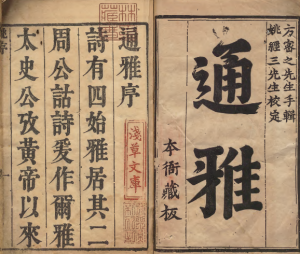 方密之先生手輯
姚經三先生校定
通雅
本衙藏板
通雅序
詩有四始雅居其二
周公詁詩爰作爾雅
太史公攷黃帝以來
淺草文庫